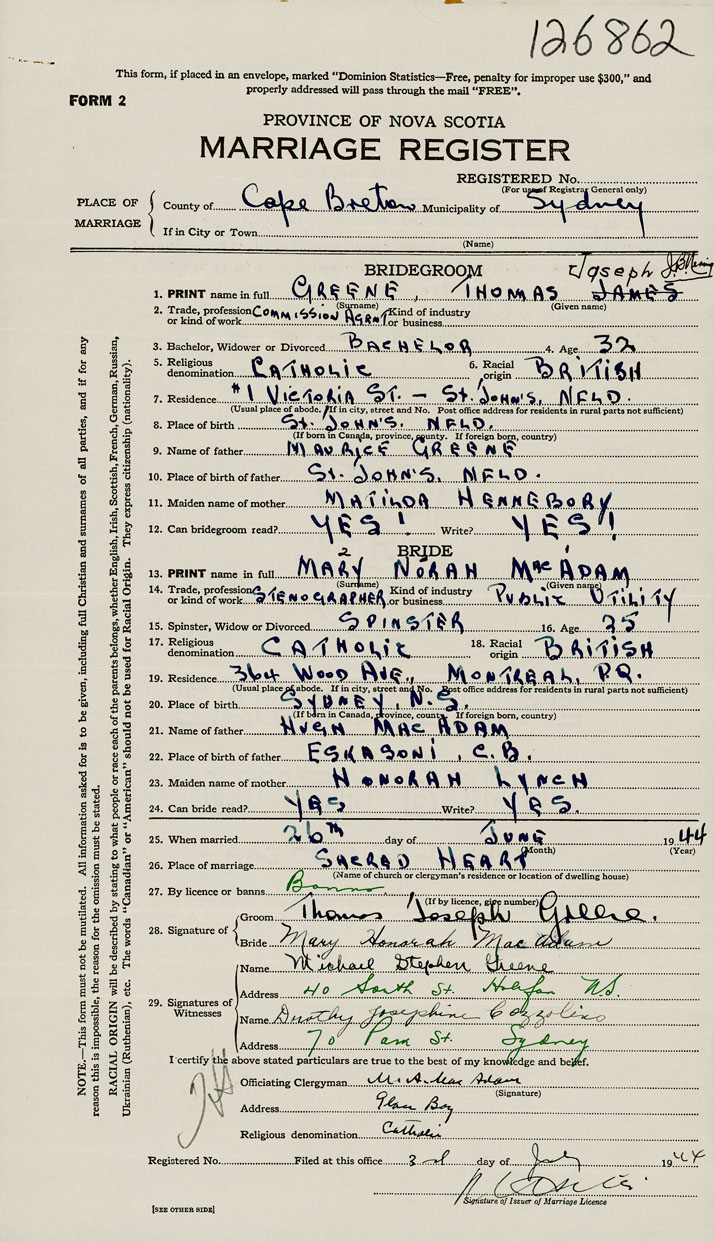 126862
This form, if placed in an envelope, marked "Dominion Statistics—Free, penalty for improper use $300," and
properly addressed will pass through the mail "FREE".
FORM 2
PROVINCE OF NOVA SCOTIA
MARRIAGE REGISTER
REGISTERED No.
(For use of Registrar General only)
PLACE OF MARRIAGE
County of Cape Breton Municipality of Sydney
If in City or Town
(Name)
BRIDEGROOM Joseph
1. PRINT name in full GREENE, THOMAS JAMES
(Surname) (Given name)
2. Trade, profession or kind of work COMMISSION AGENT Kind of industry or business
3. Bachelor, Widower or Divorced BACHELOR 4. Age 32
5. Religious denomination CATHOLIC 6. Racial origin BRITISH
7. Residence #1 VICTORIA ST. - ST. JOHN'S, NFLD.
(Usual place of abode. If in city, street and No. Post office address for residents in rural parts not sufficient)
8. Place of birth ST. JOHN'S, NFLD.
(If born in Canada, province, county. If foreign born, country)
9. Name of father MAURICE GREENE
10. Place of birth of father ST. JOHN'S, NFLD.
11. Maiden name of mother MATILDA HENNEBORY
12. Can bridegroom read? YES! Write? YES!
BRIDE
2 1
13. PRINT name in full MARY NORAH MacADAM
(Surname) (Given name)
14. Trade, profession or kind of work STENOGRAPHER Kind of industry or business PUBLIC UTILITY
15. Spinster, Widow or Divorced SPINSTER 16. Age 25
17. Religious denomination CATHOLIC 18. Racial origin BRITISH
19. Residence 364 WOOD AVE., MONTREAL, P.Q.
(Usual place of abode. If in city, street and No. Post office address for residents in rural parts not sufficient)
20. Place of birth SYDNEY, N.S.
(If born in Canada, province, county. If foreign born, country)
21. Name of father HUGH MACADAM
22. Place of birth of father ESKASONI, C.B.
23. Maiden name of mother HONORAH LYNCH
24. Can bride read? YES Write? YES.
25. When married 26th day of JUNE 1944
(Month) (Year)
26. Place of marriage SACRED HEART
(Name of church or clergyman's residence or location of dwelling house)
27. By licence or banns Banns
(If by licence, give number)
28. Signature of
Groom Thomas Joseph Greene.
Bride Mary Honorah MacAdam
29. Signatures of Witnesses
Name Michael Stephen Greene
Address 40 South St. Halifax N.S.
Name Dorothy Josephine Cozzolino
Address 70 St. Sydney
I certify the above stated particulars are true to the best of my knowledge and belief.
Officiating Clergyman M. A. MacAdam
(Signature)
Address Glace Bay
Religious denomination Catholic
Registered No. Filed at this office 3rd day of July 1944
Signature of Issuer of Marriage Licence
[SEE OTHER SIDE]
NOTE.—This form must not be mutilated. All information asked for is to be given, including full Christian and surnames of all parties, and if for any
reason this is impossible, the reason for the omission must be stated.
RACIAL ORIGIN will be described by stating to what people or race each of the parents belongs, whether English, Irish, Scottish, French, German, Russian,
Ukrainian (Ruthenian), etc. The words "Canadian" or "American" should not be used for Racial Origin. They express citizenship (nationality).